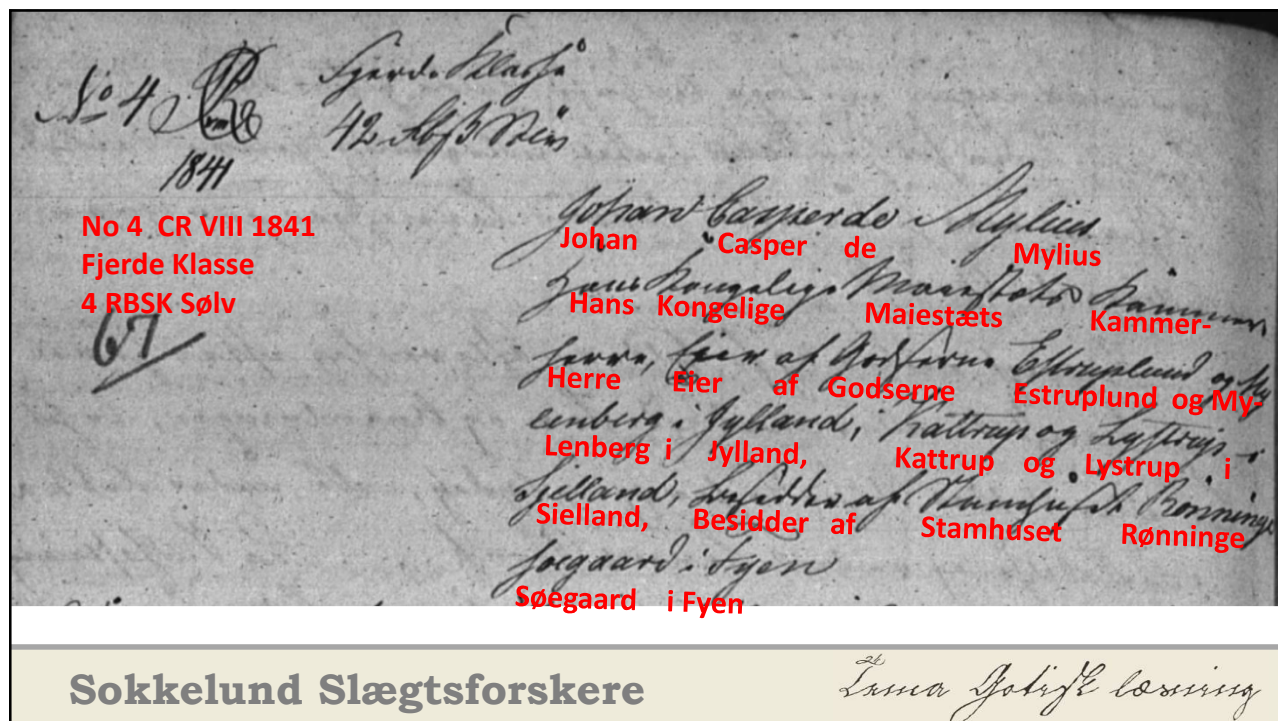 No 4
Fjerde Klasse
42 Rbsk Sølv
1841
No 4 CR VIII 1841
Fjerde Klasse
4 RBSK Sølv
67
Johan Casper de Mylius
Johan Casper de Mylius
Hans Kongelige Maiestæts Kammer-
Hans Kongelige Maiestæts Kammer-
herre, Eier af Godserne Estruplund og My
Herre Eier af Godserne Estruplund og My-
lenberg i Jylland, Kattrup og Lystrup i
Lenberg i Jylland, Kattrup og Lystrup i
Sielland, Besidder af Stamhuset Rønninge
Sielland, Besidder af Stamhuset Rønninge
Søegaard i Fyen
Søegaard i Fyen
Sokkelund Slægtsforskere
Tema Gotisk læsning